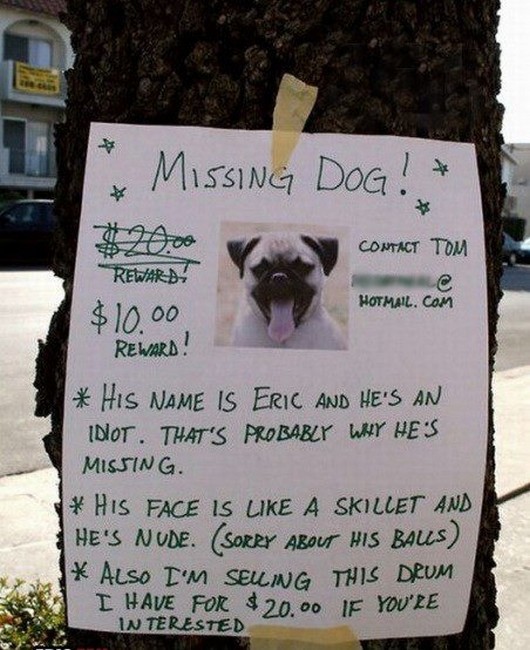 Missing Dog!
$20.00
REWARD!
$10.00
REWARD!
CONTACT TOM
@
HOTMAIL.COM
* HIS NAME IS ERIC AND HE'S AN
IDIOT. THAT'S PROBABLY WHY HE'S
MISSING.
* HIS FACE IS LIKE A SKILLET AND
HE'S NUDE. (SORRY ABOUT HIS BALLS)
* ALSO I'M SELLING THIS DRUM
I HAVE FOR $20.00 IF YOU'RE
INTERESTED